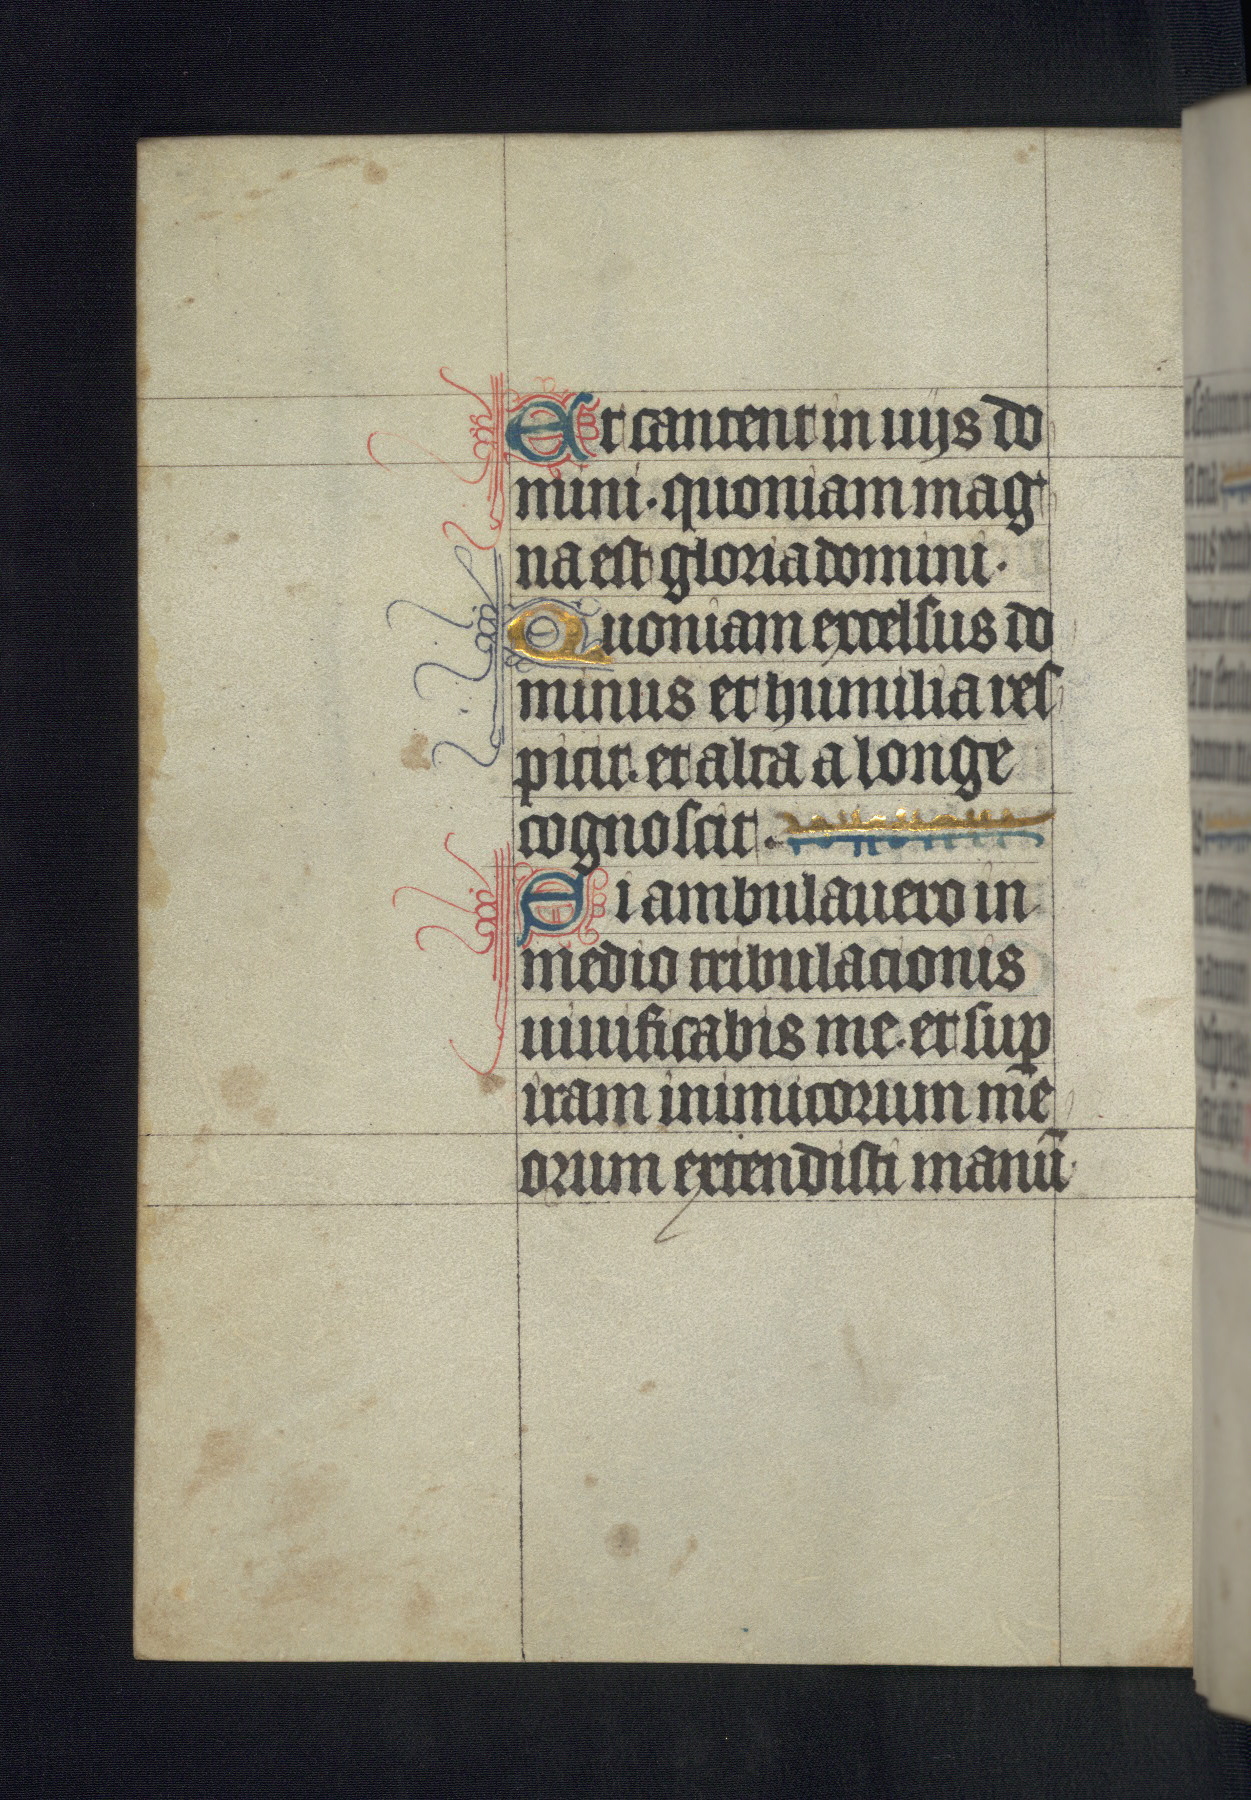 Et cantent in uijs do
mini. quoniam mag
na est gloria domini.
Quoniam excelsus do
minus et humilia res
picit. et alta a longe
cognoscit.
Si ambulauero in
medio tribulacionis
uiuificabis me. et sup
iram inimicorum me
orum extendisti manū